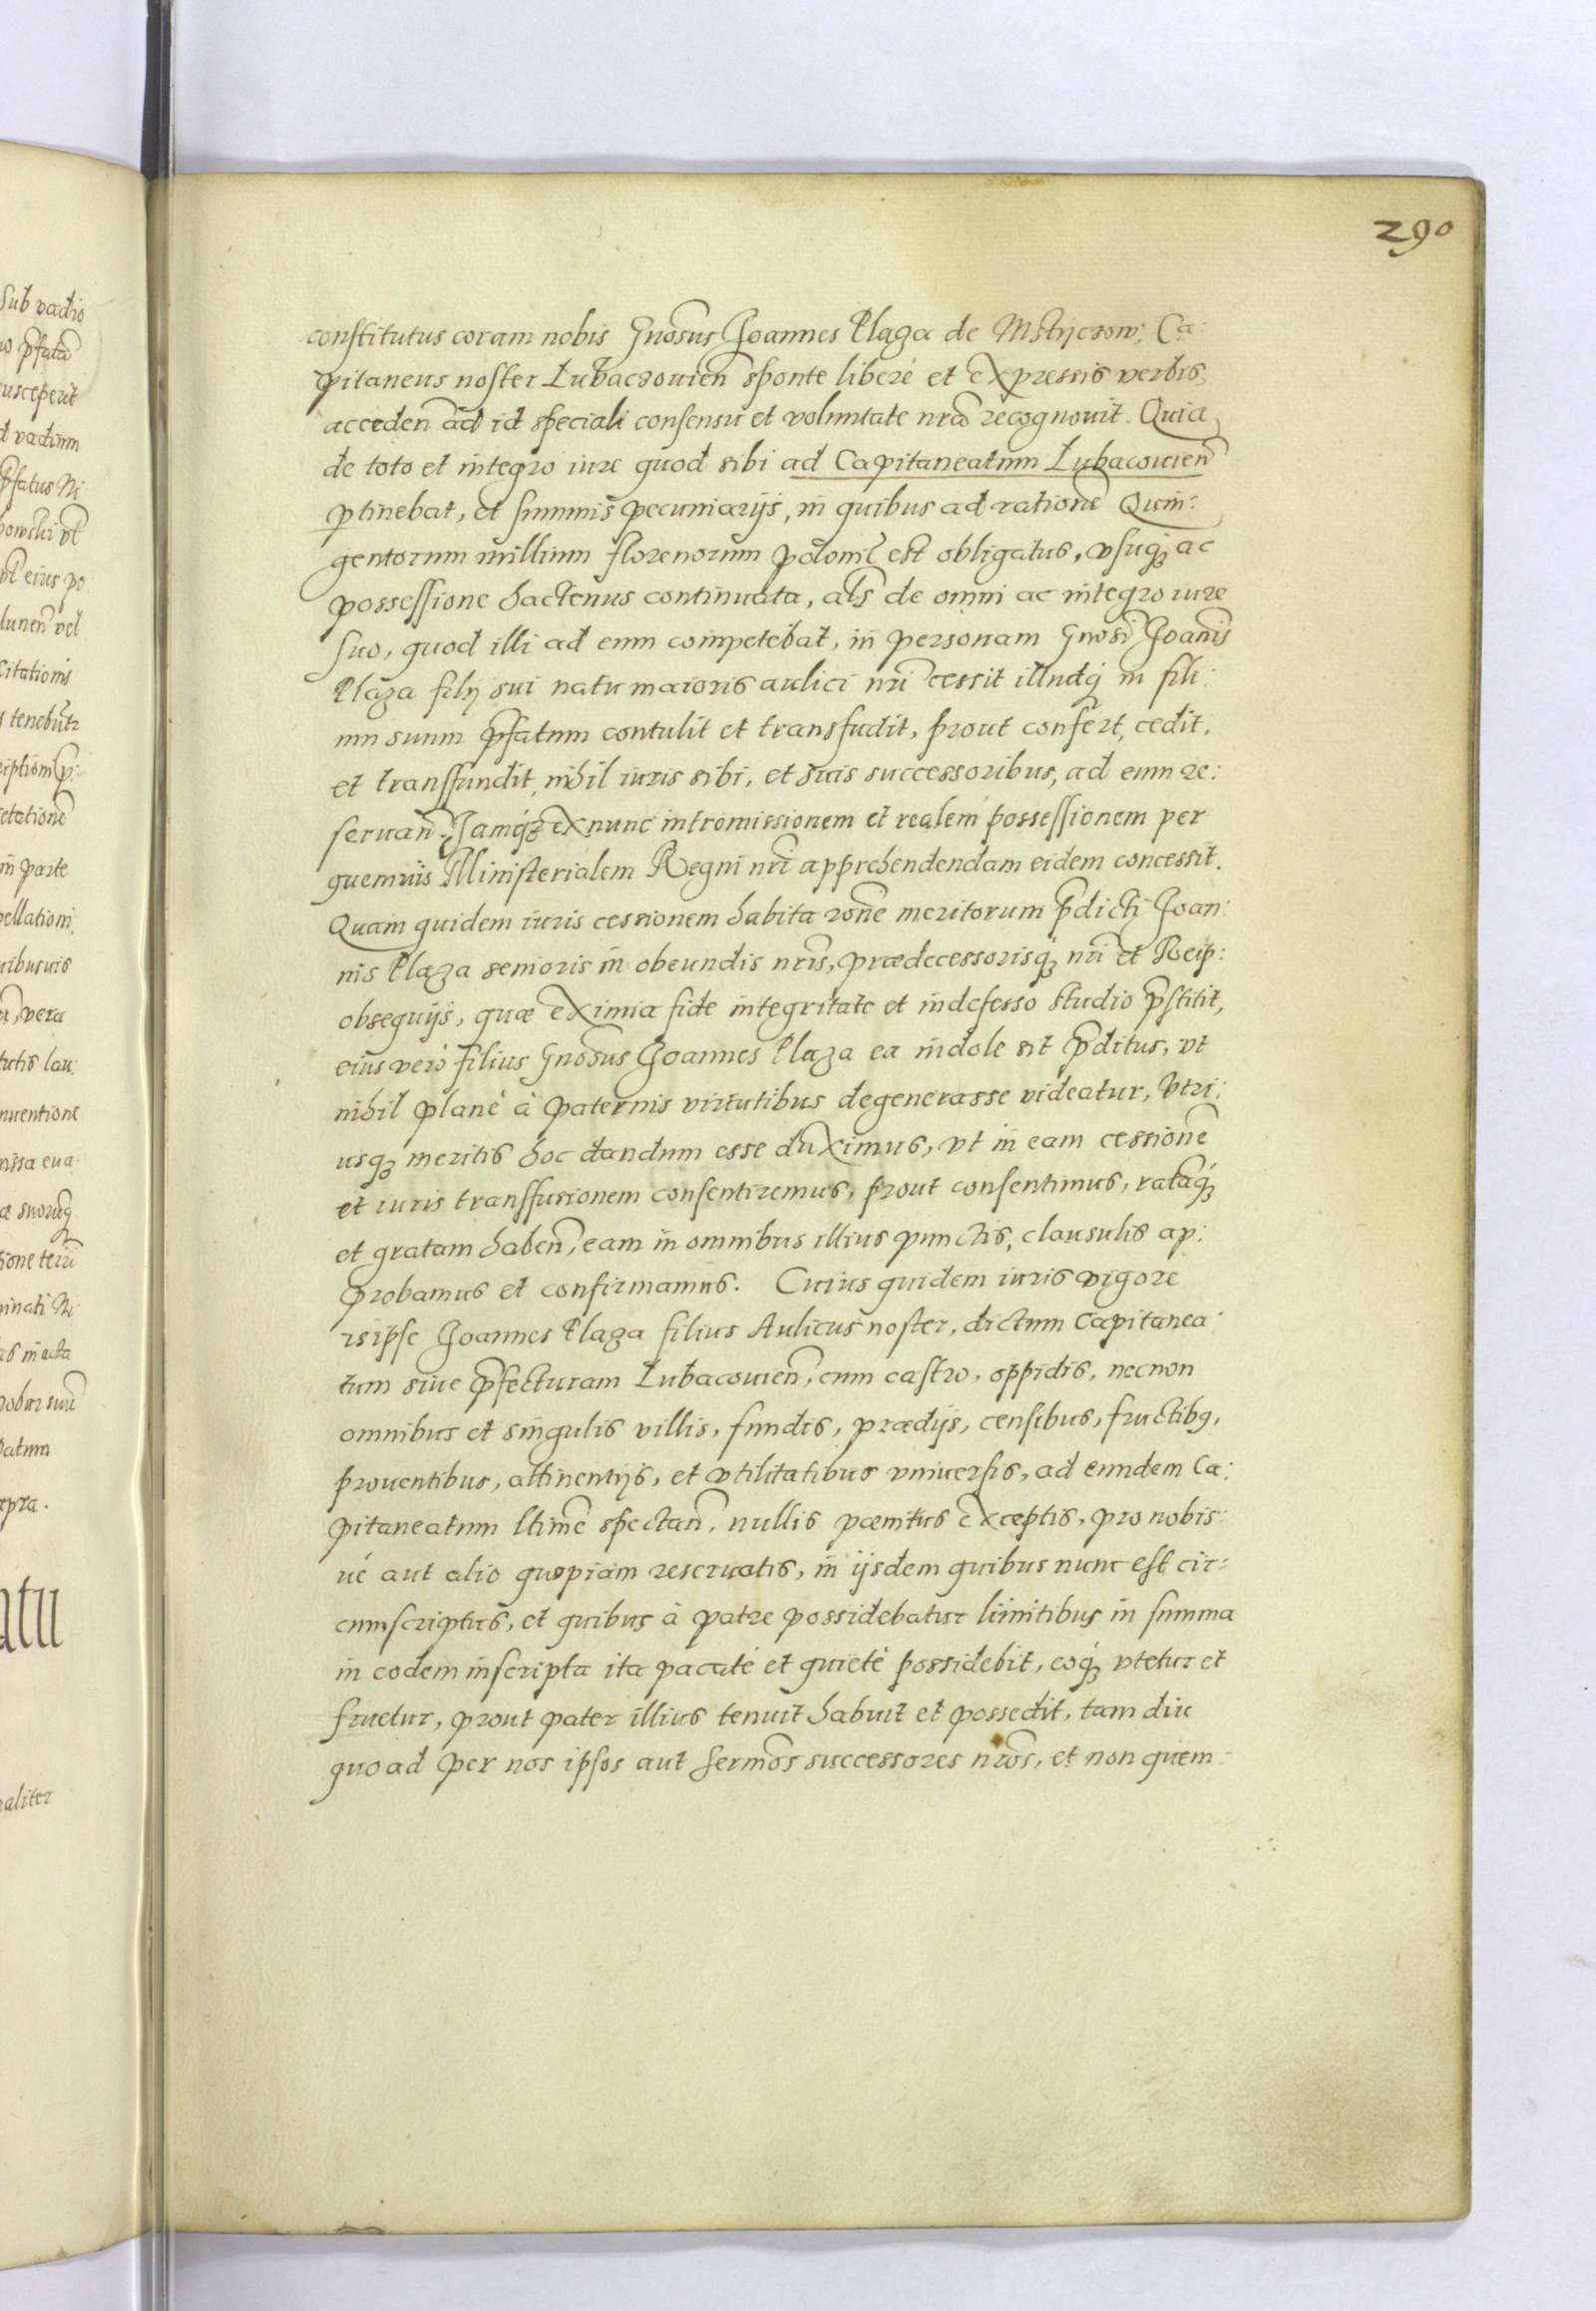 290
constitutus coram nobis Gnosus Joannes Plaza de Mstyczow, Ca:
pitaneus noster Lubaczouien sponte liberè et expressis verbis,
acceden ad id speciali consensu et voluntate nra recognouit. Quia
de toto et integro iure quod sibi ad Capitaneatum Lubacouien
ptinebat, et summis pecuniarijs, in quibus ad ratione Quin:
gentorum millium florenorum polonil est obligatus, vsuq3 ac
possessione hactenus continuata, als de omni ac integro iure
suo, quod illi ad eum competebat, in personam Gnosi Joanis
Plaza filij sui natu maioris aulici nri cessit illudq3 in fili:
um suum pfatum contulit et transfudit, prout confert, cedit,
et transfundit, nihil iuris sibi, et suis successoribus, ad eum re:
seruan. Jamq3 ex nunc intromissionem et realem possessionem per
quemuis Ministerialem Regni nri apprehendendam eidem concessit.
Quam quidem iuris cessionem habita rone meritorum pdicti Joan:
nis Plaza senioris in obeundis nris, prædecessorisq3 nri et Reip:
obsequijs, quæ eximia fide integritate et indefesso studio pstitit,
eius verò filius Gnosus Joannes Plaza ea indole sit pditus, vt
nihil planè à paternis virtutibus degenerasse videatur, vtri:
usq3 meritis hoc dandum esse duximus, vt in eam cessione
et iuris transfusionem consentiremus, prout consentimus, rataq3
et gratam haben, eam in omnibus illius punctis, clausulis ap:
probamus et confirmamus. Cuius quidem iuris vigore
is ipse Joannes Plaza filius Aulicus noster, dictum Capitanea:
tum siue pfecturam Lubacouien, cum castro, oppidis, necnon
omnibus et singulis villis, fundis, prædijs, censibus, fructib9,
prouentibus, attinentijs, et vtilitatibus vniuersis, ad eundem Ca:
pitaneatum ltime spectan, nullis pœnitus exceptis, pro nobis:
ué aut alio quopiam reseruatis, in ijsdem quibus nunc est cir:
cumscriptus, et quibus à patre possidebatur limitibus in summa
in eodem inscripta ita pacatè et quietè possidebit, eoq3 vtetur et
fruetur, prout pater illius tenuit habuit et possedit, tam diu
quoad per nos ipsos aut sermos successores nros, et non quem: